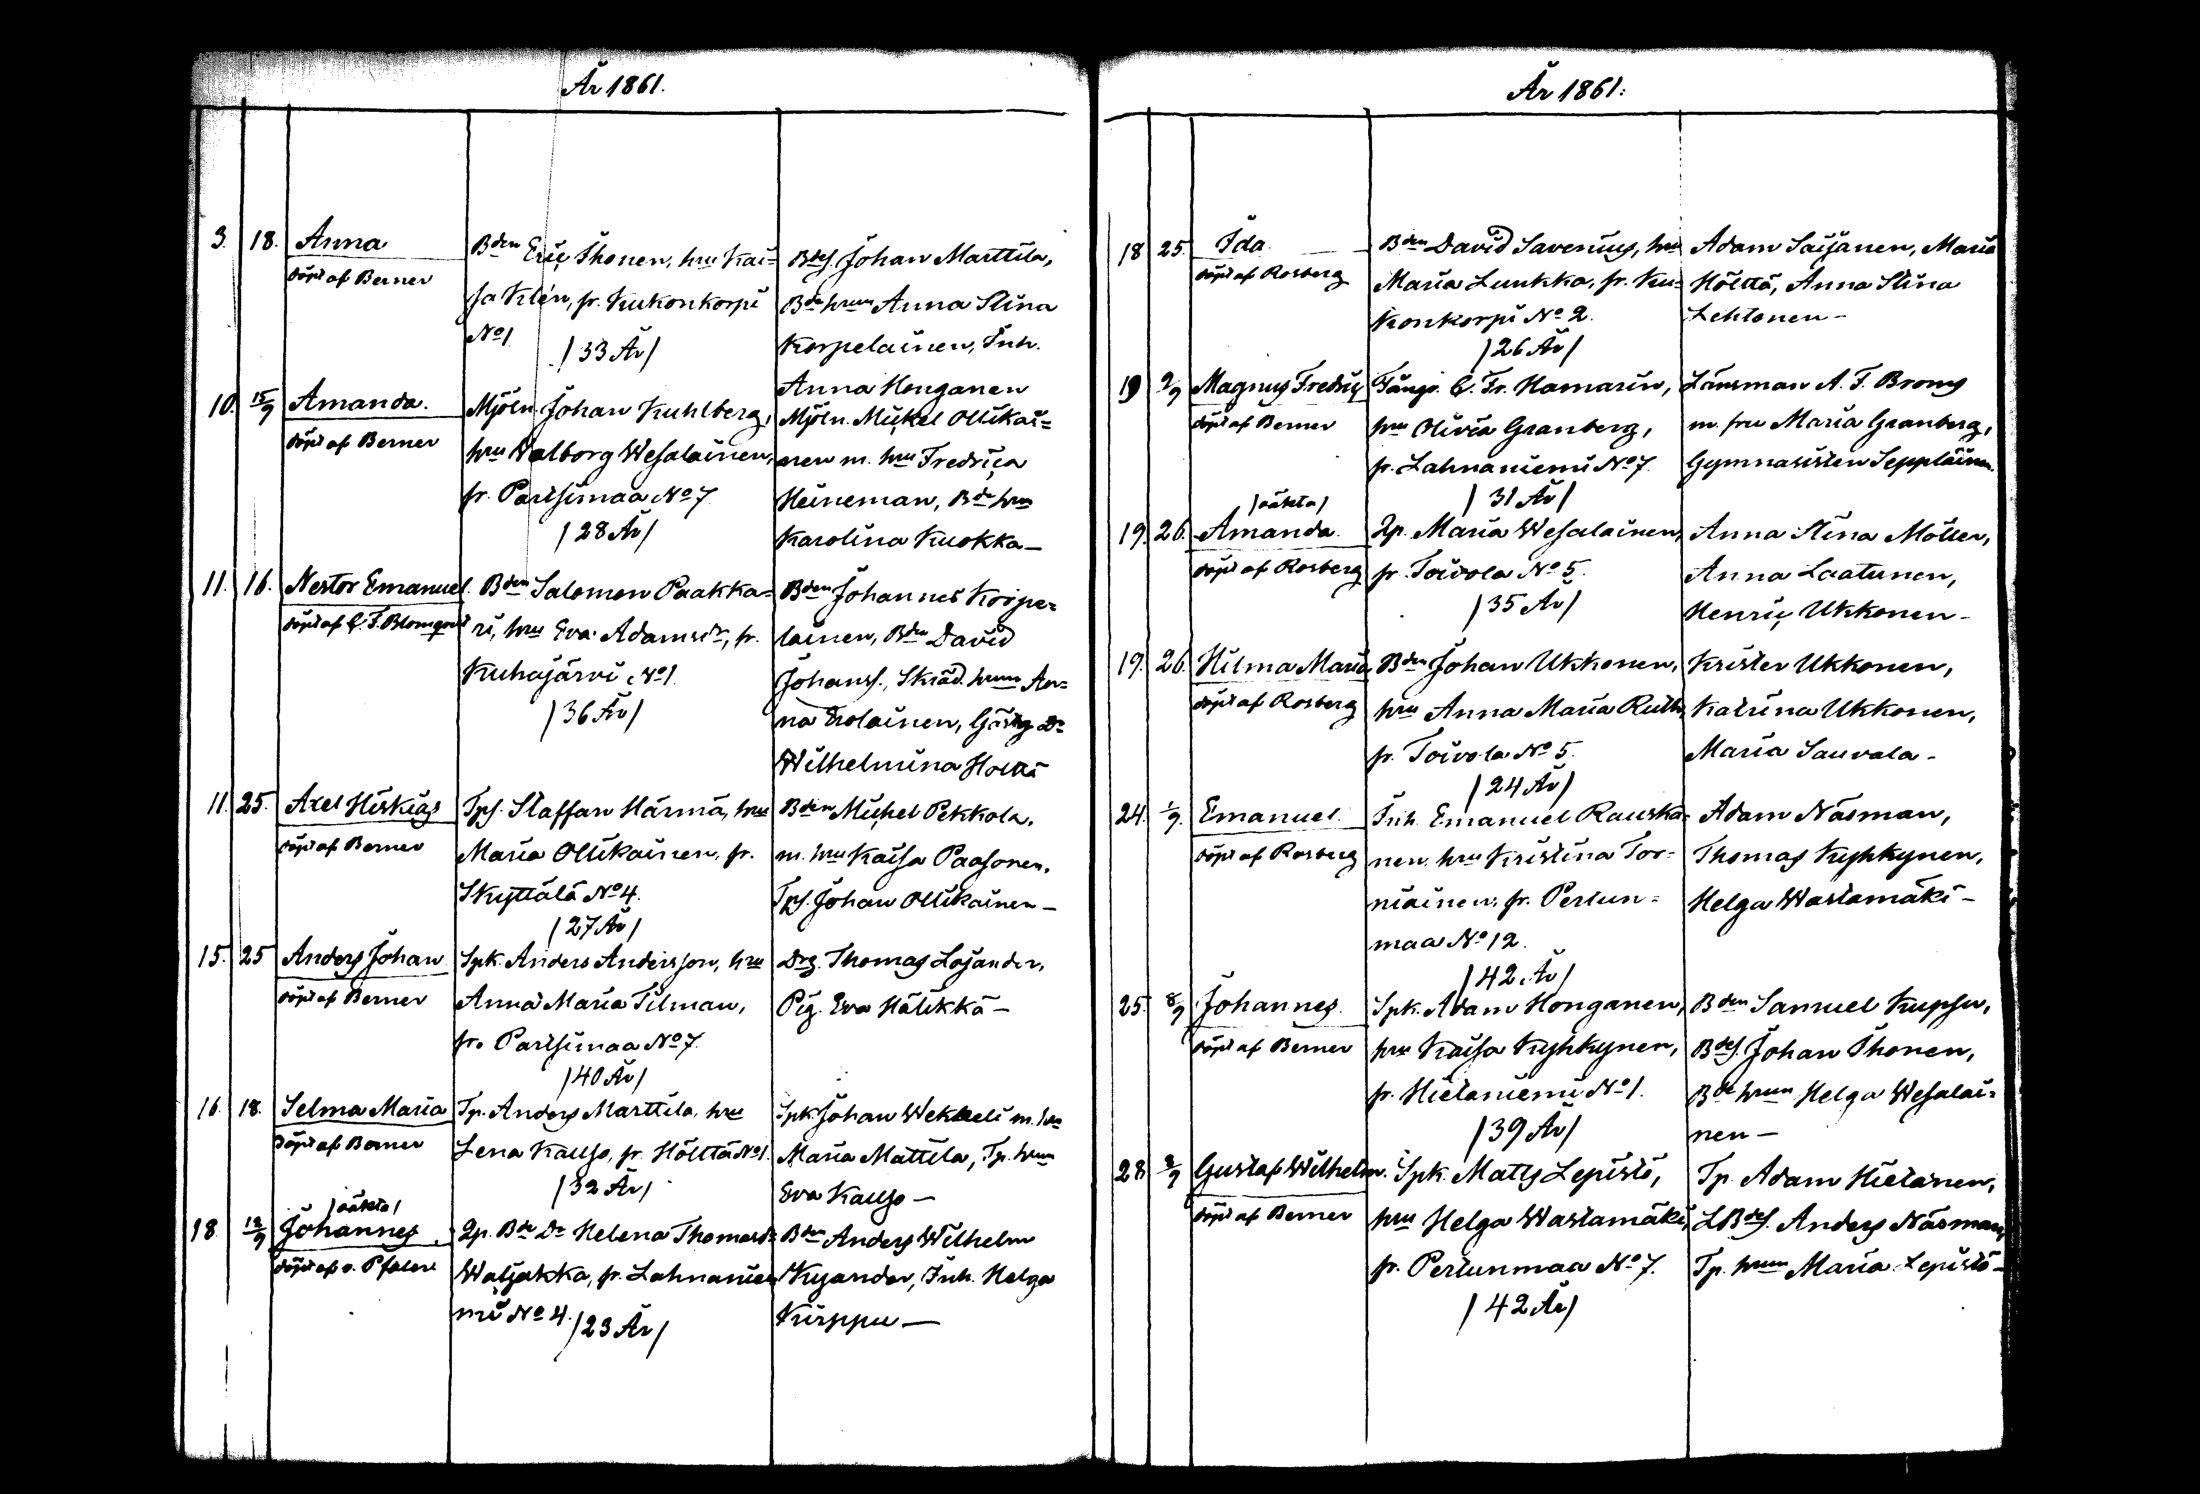 År 1861.
3. 18. Anna
döpt af Berner
Bden Eric Ihonen, hru Kai=
sa Klén, fr. Kukonkorpi
No1
/33 År/
Bdes. Johan Marttila,
Bde hrun Anna Stina
Korpelainen, Inh.
Anna Honganen
10. 15/9 Amanda.
döpt af Berner
Mjöln. Johan Kuhlberg,
hru Walborg Wesalainen,
fr. Partsimaa No7
/28 År/
Mjöln. Mickel Ollikai=
nen m. hru Fredrica
Heineman, Bde hru
Karolina Kuokka—
11. 16. Nestor Emanuel.
döpt af C. F. Blomqvist
Bden Salomon Paakka=
ri, hru Eva Adamsdr, fr.
Kuhajärvi No1.
/36 År/
Bden Johannes Korpe=
lainen, Bden David
Johans., Skräd. hrun An=
na Erolainen, Gästg. Dr
Wilhelmina Holttä
11. 25. Axel Hiskias
döpt af Berner
Tps. Staffan Härmä, hru
Maria Ollikainen, fr.
Skyttälä No4.
/27 År/
Bden Michel Pekkola,
m. hru Kaisa Paasonen,
Tps. Johan Ollikainen—
15. 25 Anders Johan
döpt af Berner
Spk. Anders Andersson, hru
Anna Maria Tilman,
fr. Partsimaa No7.
/40 År/
Drg. Thomas Lojander,
Pig. Eva Hälikkä—
16. 18. Selma Maria
döpt af Berner
Tp. Anders Marttila, hru
Lena Kauso, fr. Hölttä No1.
/32 År/
Spk. Johan Wekkeli m. hru
Maria Mattila, Tp. hrun
Eva Kauso—
/oäkta/
18 12/9 Johannes
döpt af v. Pfaler
Qp. Bde Dr Helena Thomasdr
Waljakka, fr. Lahnanie
mi No4. /23 År/
Bden Anders Wilhelm
Kyander, Inh. Helga
Kirppu—
År 1861.
18 25. Ida
döpt af Rosberg
Bden David Savenius, hru
Maria Luukka, fr. Ku=
konkorpi No2.
/26 År/
Adam Saijanen, Maria
Hölttä, Anna Stina
Lehtonen—
19 2/9 Magnus Fredric
döpt af Berner
Fångv. C. Fr. Hamarin,
hru Olivia Granberg,
fr. Lahnaniemi No7.
/31 År/
Länsman A. F. Broms
m. fru Maria Granberg,
Gymnasisten Seppläinen.
/oäkta/
19. 26. Amanda.
döpt af Rosberg
Qp. Maria Wesalainen,
fr. Toivola No5.
/35 År/
Anna Stina Möller,
Anna Laatunen,
Henric Ukkonen—
19. 26. Hilma Maria
döpt af Rosberg
Bden Johan Ukkonen,
hru Anna Maria Ruth,
fr. Toivola No5.
/24 År/
Krister Ukkonen,
Katrina Ukkonen,
Maria Sauvala—
24. 1/9. Emanuel.
döpt af Rosberg
Inh. Emanuel Rauska=
nen, hru Kristina Tor=
niainen, fr. Pertun=
maa No12.
/42 År/
Adam Näsman,
Thomas Kyhkynen,
Helga Wastamäki—
25. 8/9 Johannes.
döpt af Berner
Spk. Adam Honganen,
hru Kaisa Kyhkynen,
fr. Hietaniemi No1.
/39 År/
Bden Samuel Kupsu,
Bdes. Johan Ihonen,
Bde hrun Helga Wesalai=
nen—
28. 8/9 Gustaf Wilhelm.
döpt af Berner
Spk. Matts Lepistö,
hru Helga Wastamäki,
fr. Pertunmaa No7.
/42 År/
Tp. Adam Hietanen,
LBdes. Anders Näsman,
Tp. hrun Maria Lepistö—